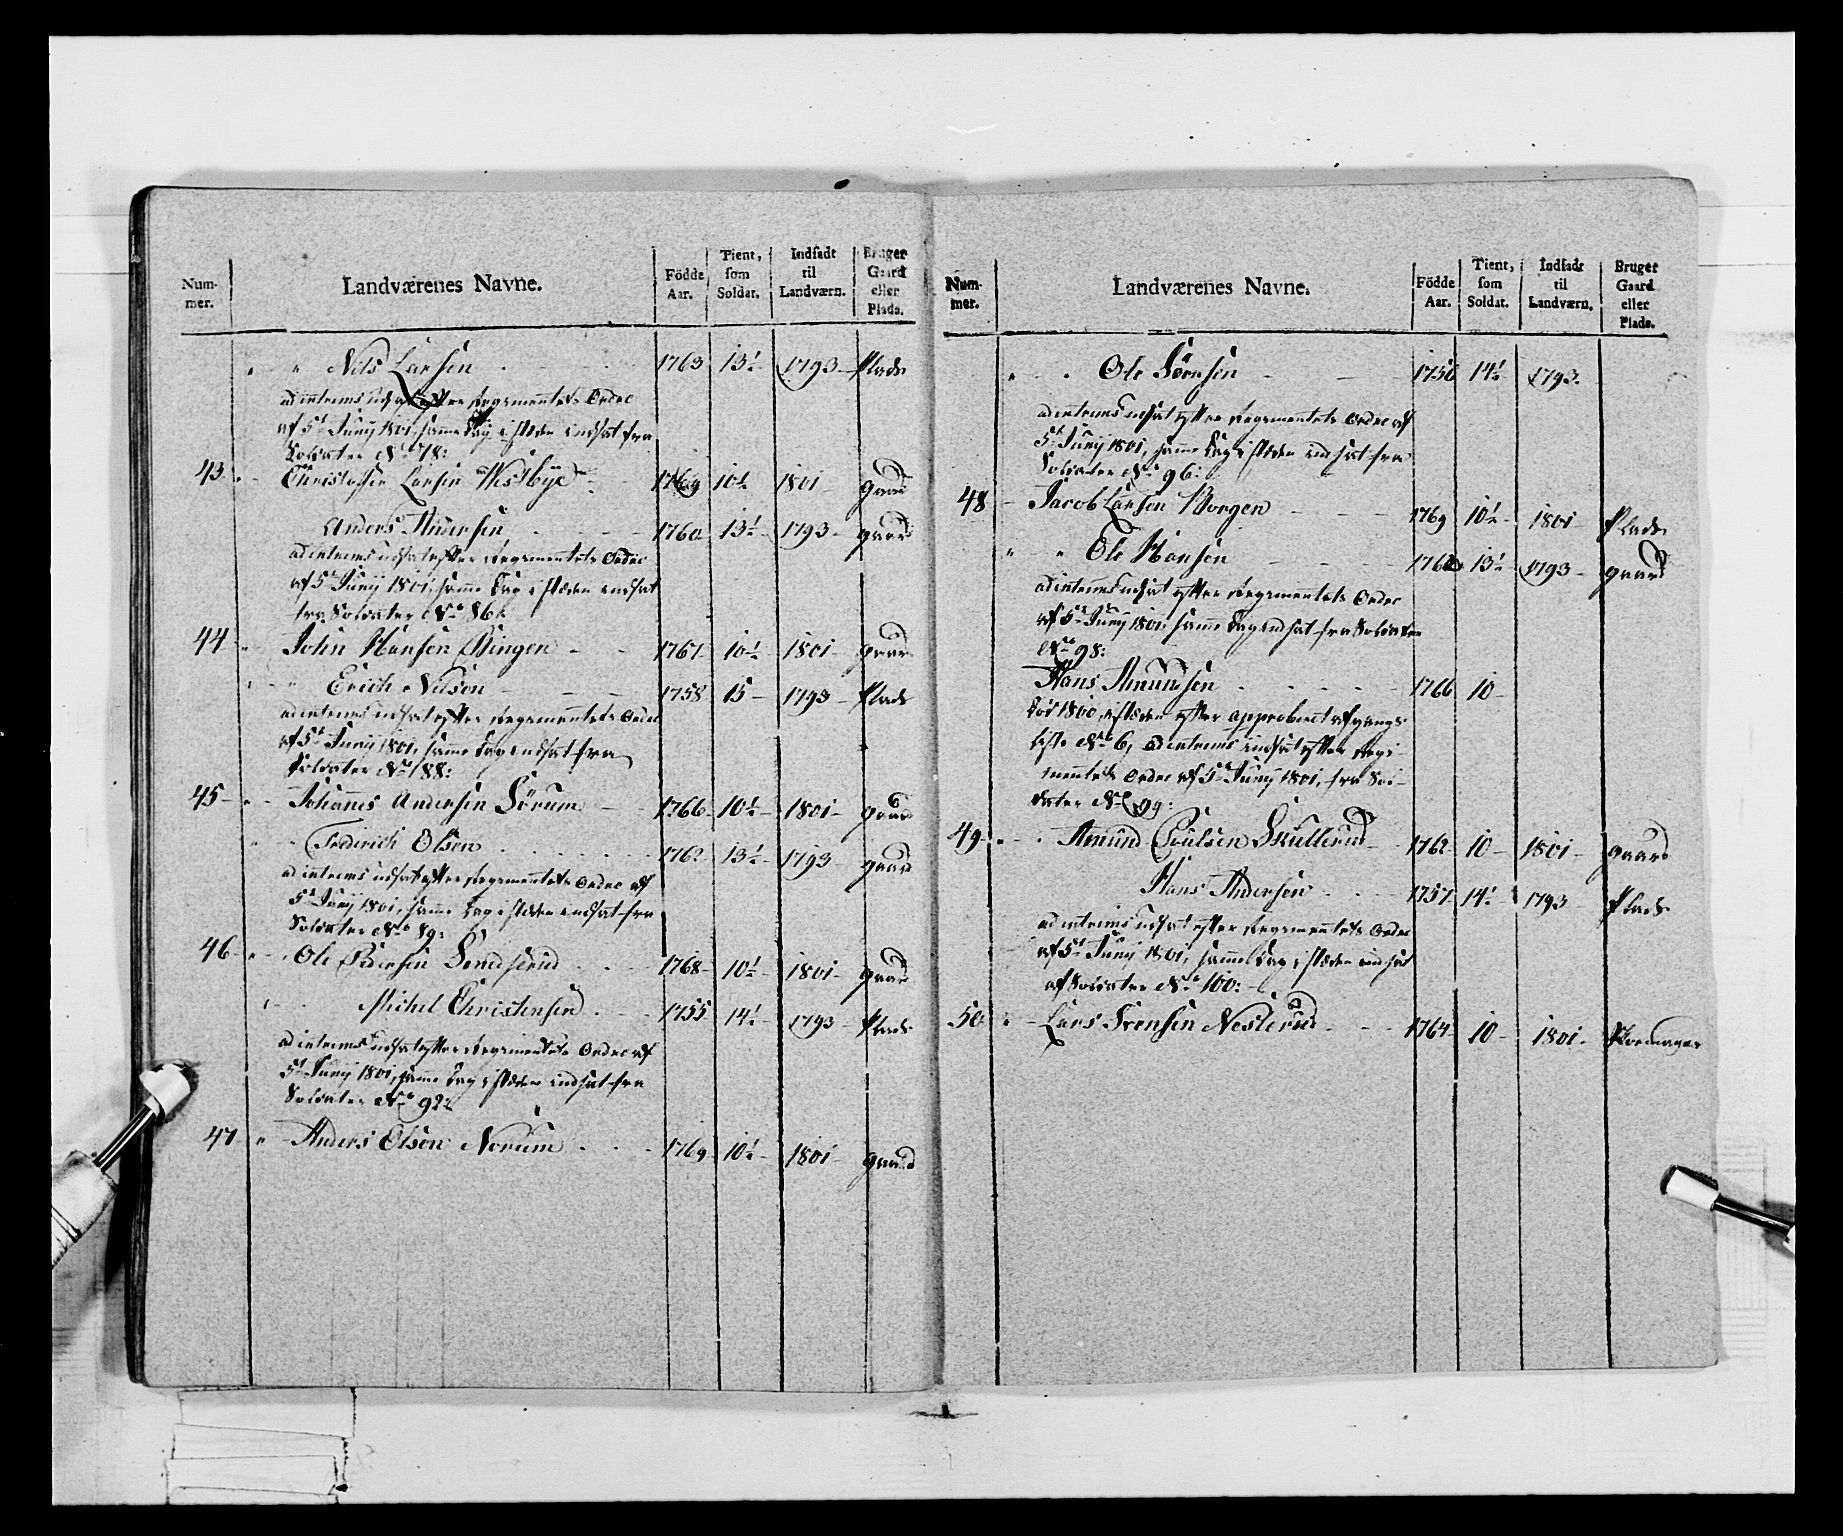 Num-
mer.
Landværenes Navne.
Födde
Aar.
Tient,
som
Soldat.
Indsadt
til
Landværn.
Bruger
Gaard
eller
Plads.
" " Nils Larsen 1763 13½ 1793 Plads
ad interims udsat efter Regimentets Ordre
af 5te Junij 1801, samme Dag i stæden indsat fra
Soldater No 78:
43 " Christopher Larsen Westbye 1769 10½ 1801 gaard
Anders Andersen 1760 13½ 1793 gaard
ad interims udsat efter Regimentets Ordre
af 5te Junij 1801, samme Dag i stæden indsat
fra Soldater No 86:
44 " John Hansen Bingen 1767 10½ 1801 gaard
" " Erich Nilsen 1758 15 1793 Plads
ad interims udsat efter Regimentets Ordre
af 5te Junij 1801, samme Dag indsat fra
Soldater No 88:
45 " Johannes Andersen Sörum 1766 10½ 1801 gaard
" " Frederich Olsen 1762 13½ 1793 gaard
ad interims udsat efter Regimentets Ordre af
5te Junij 1801, samme Dag i stæden indsat fra
Soldater No 89:
46 " Ole Pedersen 1768 10½ 1801 gaard
" Michel Christensen 1755 14½ 1793 Plads
ad interims udsat efter Regimentets Ordre af
5te Junij 1801, samme Dag i stæden indsat fra
Soldater No 92:
47 " Anders Olsen Norum 1769 10½ 1801 gaard
Num-
mer.
Landværenes Navne.
Födde
Aar.
Tient,
som
Soldat.
Indsadt
til
Landværn.
Bruger
Gaard
eller
Plads.
" " Ole Sörensen 1756 14½ 1793
ad interims udsat efter Regimentets Ordre af
5te Junij 1801, samme Dag i stæden indsat fra
Soldater No 96:
48 Jacob Larsen Borgen 1769 10½ 1801 Plads
" " Ole Hansen 13½ 1793 gaard
ad interims udsat efter Regimentets Ordre
af 5te Junij 1801, samme Dag indsat fra Soldater
No 98:
Hans Amundsen 1766 10
död 1800, i stæden efter approberet afgangs
liste No 6, ad interims indsat efter Regi-
mentets Ordre af 5te Junij 1801, fra Sol-
dater No 99:
49 " Amund Poulsen Skullerud 1762 10 1801 gaard
Hans Andersen 1757 14½ 1793 Plads
ad interims udsat efter Regimentets Ordre
af 5te Junij 1801, samme Dag i stæden indsat
af Soldater No 100:
50 " Lars Svensen Nesterud 1764 10 1801